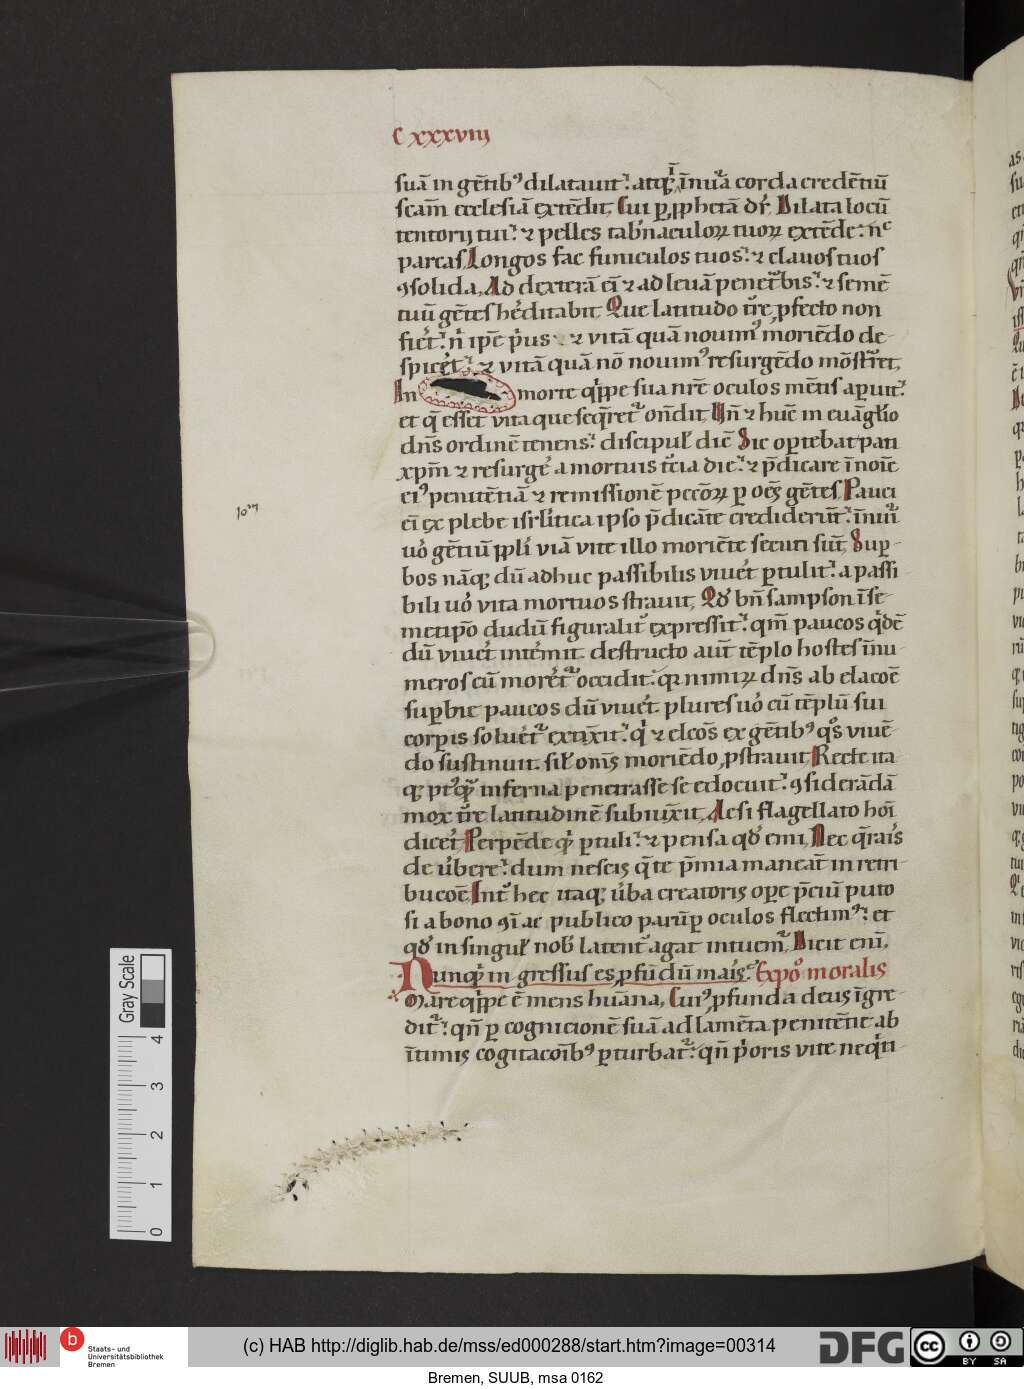 C xxxviij
suā in gētibꝰ dilatauit. atq; ī inūa corda credētiū
scam̄ ecclesiā extēdit, Cui ꝑ ꝓphetā dr̄. Dilata locū
tentorij tui. ⁊ pelles tabnaculoꝝ tuoꝝ extēde. n̄c
parcas, Longos fac funiculos tuos. ⁊ clauos tuos
ꝯsolida, Ad dexterā eī ⁊ ad leuā penet̄bis. ⁊ semē
tuū gētes h̓editabit Que latitudo t̄re ꝓfecto non
fie̓t. n̄ ipē p̓us ⁊ vitā quā nouimꝰ moriēdo de-
spice̓t. ⁊ vitā quā nō nouimꝰ resurgēdo mōst̄ret,
In morte q̓ppe sua nr̄e oculos mētis aꝑuit.
et q̄ esset vita que seq̄ret̓ on̄dit, Un̄ ⁊ hūc in euāgl̓io
dn̄s ordinē tenens. discipul̓ dīc Sic oꝑtebat pati
xp̄m ⁊ resurge̓ a mortuis t̄cia die. ⁊ p̄dicare ī noīe
eiꝰ penitētiā ⁊ remissionē pccōꝝ ꝑ oēs gētes, Pauci
eī ex plebe isrl̓itica ipso p̄dicāte crediderūt. īnūi
uo̓ gētiū ppl̓i viā vite illo moriēte secuti sūt, Suꝑ-
bos nāq; dū adhuc passibilis viue̓t ꝑtulit. a passi-
bili uo̓ vita mortuos strauit, Qd̓ bn̄ sampson ī se-
metip̄o dudū figuralit̓ expressit. qm̄ paucos q̓dē
dū viue̓t int̓emit. destructo aūt tēplo hostes īnu-
meros cū more̓t̓ occidit. qꝛ nimiꝝ dn̄s ab elacōē
suꝑbie paucos dū viue̓t. plures uo̓ cū tēplū sui
corꝑis solue̓t̓ extīxit. q̓ ⁊ elcōs ex gētibꝰ qͦs viuē-
do sustinuit. sil̓ om̄s moriēdo ꝓstrauit Recte ita-
q; pꝰq̓ inferna penetrasse se edocuit. ꝯsiderādā
mox t̄re latitudinē subiūxit, Ac si flagellato hoī
dice̓t, Perpēde q̓ ꝑtuli. ⁊ pensa qd̓ emi, Nec q̄raīs
de u̓bere. dum nescis q̄ te p̄mia maneāt in retri-
bucōē, Int̓ hec itaq; u̓ba creatoris oꝑe p̄ciū puto
si a bono ꝯī ac publico parūꝑ oculos flectimꝰ. et
qd̓ in singul̓ nob̓ latent̓ agat intuem̓, Dicit enī,
Nunq̓ in gressus es ꝓfūdū maīs Expo͂ moralis
Mare q̓ppe ē mens huāna, Cuiꝰ ꝓfunda deus īgre-
dit̓. qn̄ ꝑ cognicionē suā ad lamēta penitētie ab
ītimis cogitacoībꝰ ꝑturbat̓. qn̄ p̓oris vite neq̓ti-
Gray Scale
4
3
2
1
0
b
Staats- und
Universitätsbibliothek
Bremen
(c) HAB http://diglib.hab.de/mss/ed000288/start.htm?image=00314
DFG
cc
BY SA
Bremen, SUUB, msa 0162